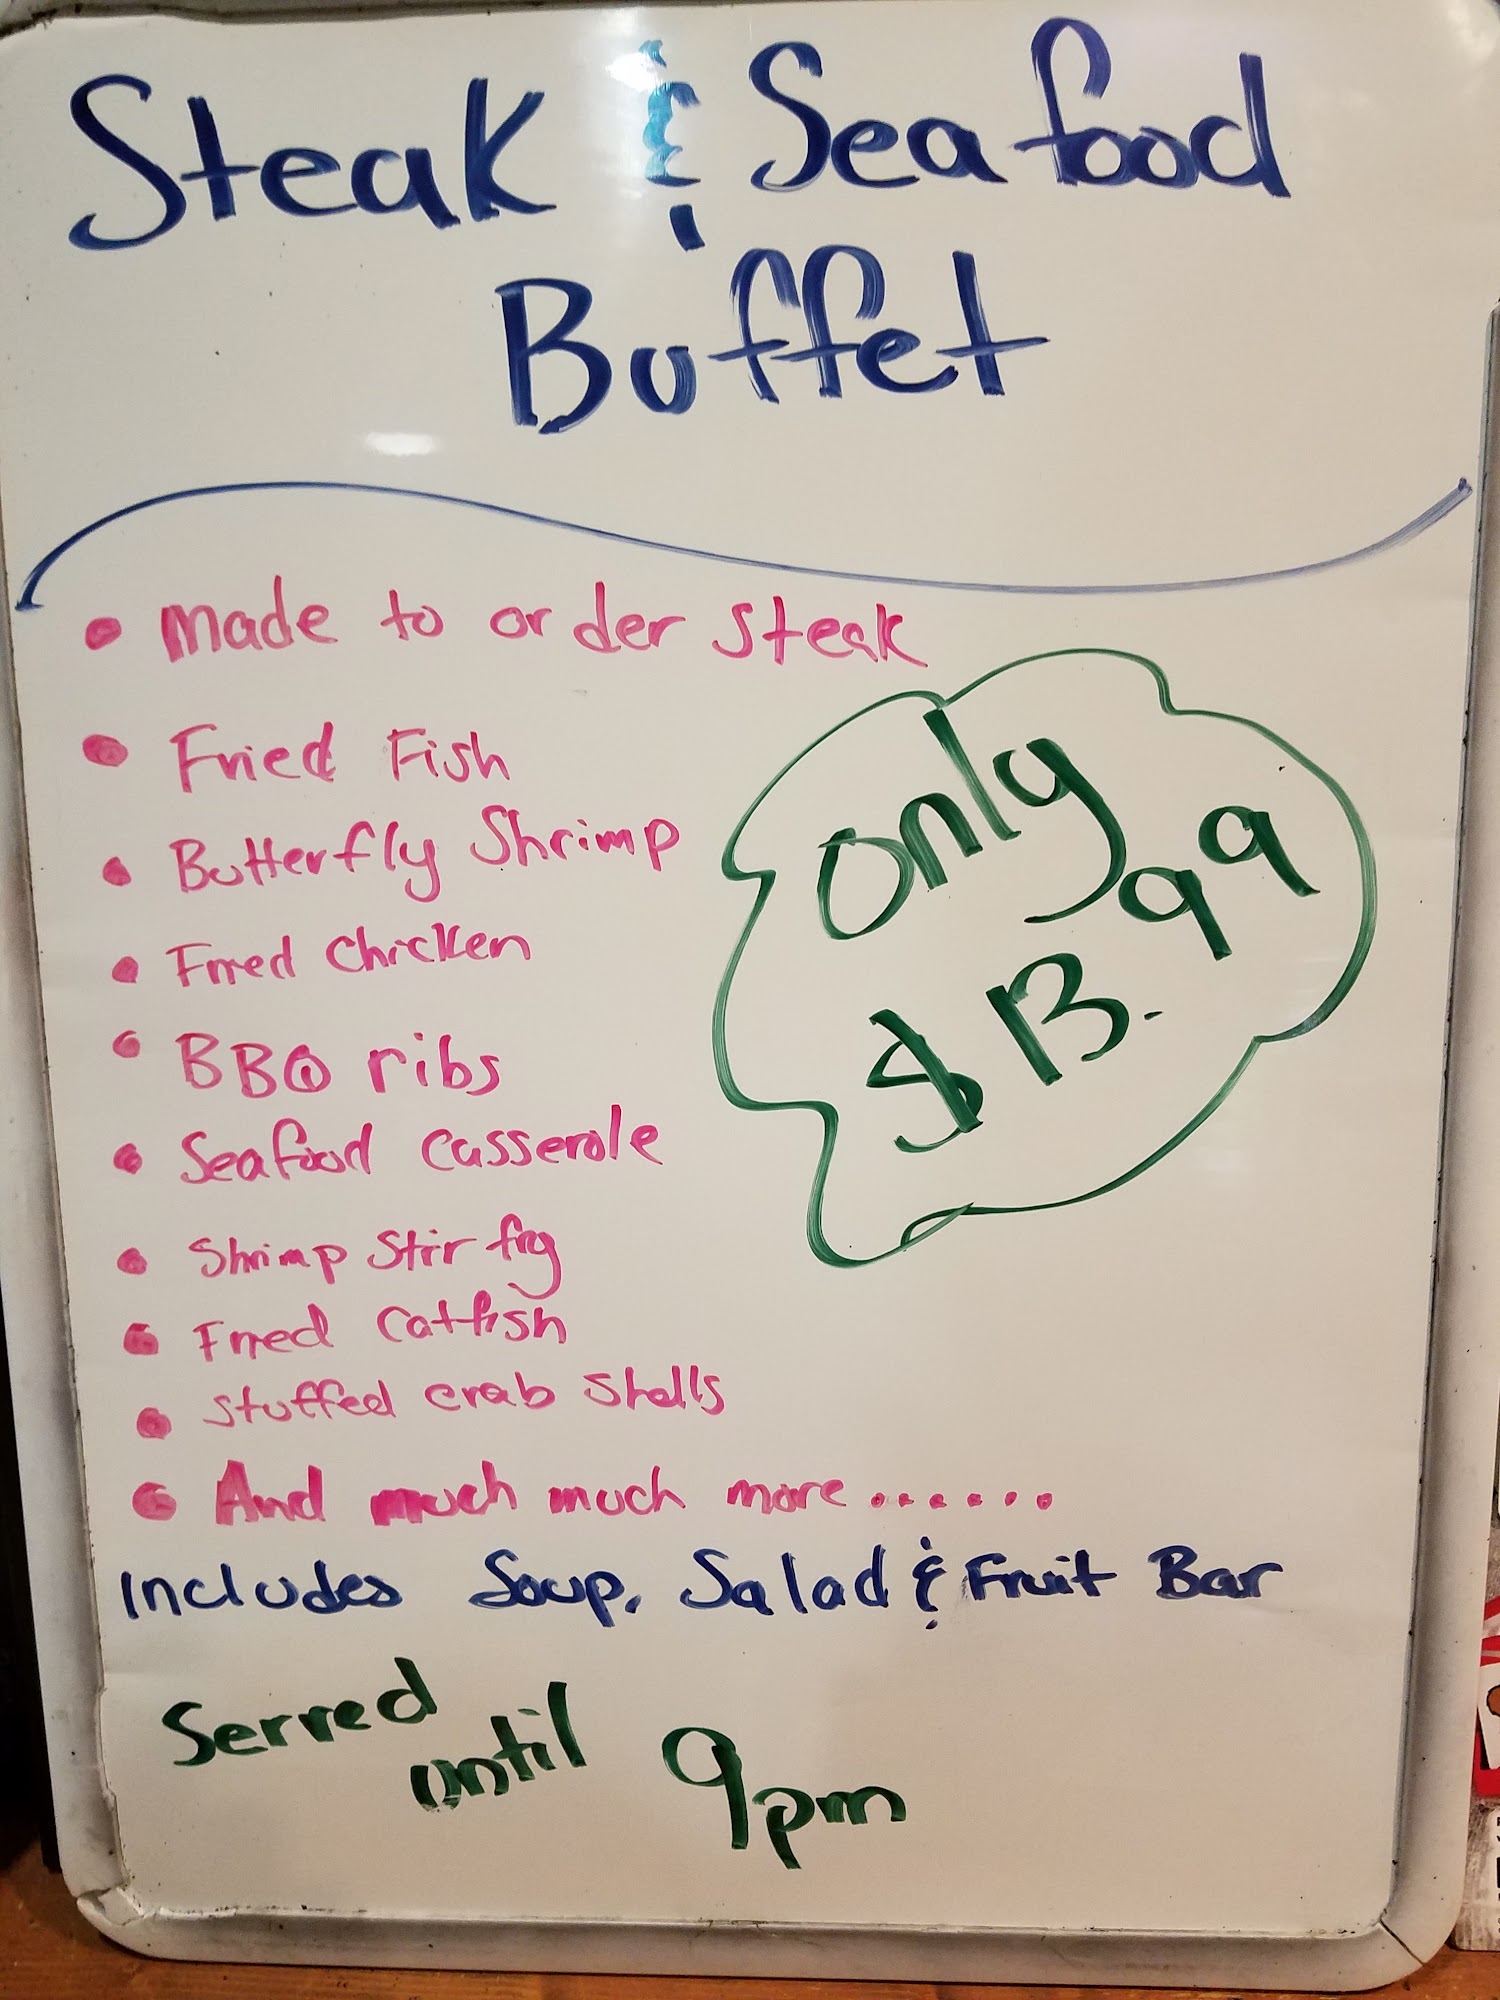 Steak & Seafood
Buffet
• Made to order steak
• Fried Fish
• Butterfly Shrimp
• Fried Chicken
• BBQ ribs
• Seafood Casserole
• Shrimp Stir fry
• Fried Catfish
• Stuffed crab shells
• And much much more.......
Only
$13.99
Includes Soup, Salad & Fruit Bar
Served
until 9pm